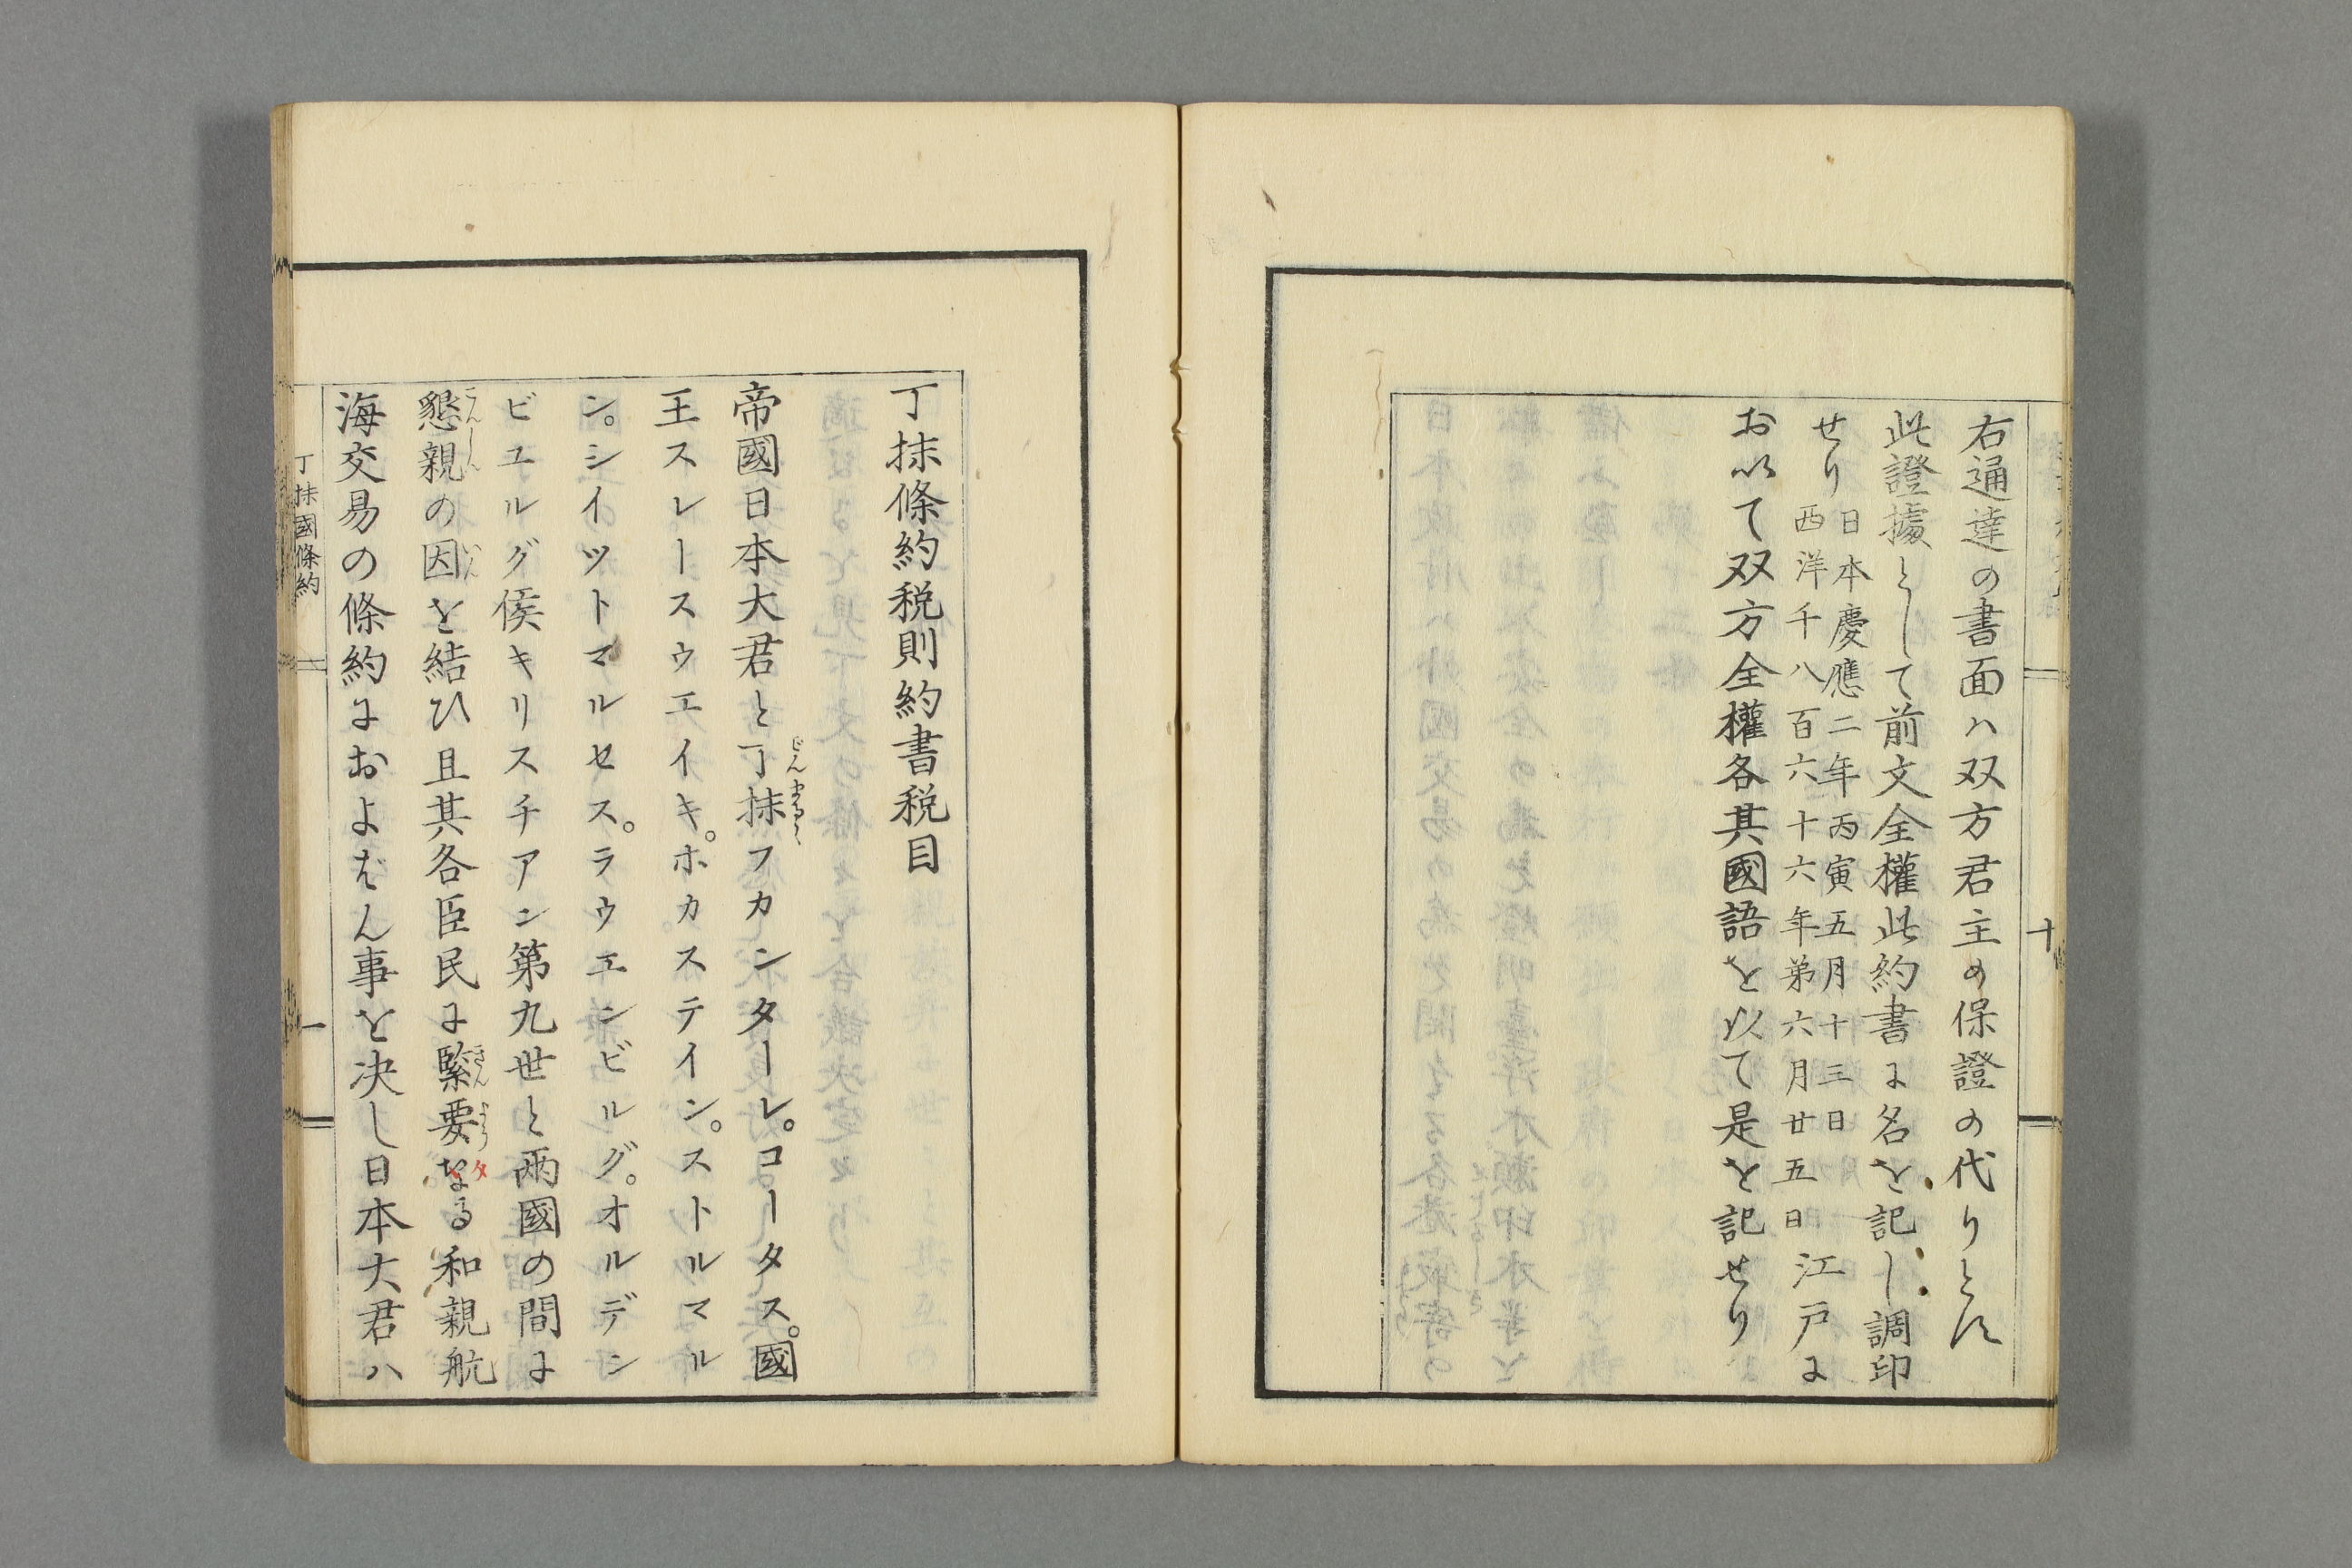 右通達の書面ハ双方君主の保證の代りとす
此證據として前文全權此約書に名を記し調印
せり
日本慶應二年丙寅五月十三日
西洋千八百六十六年第六月廿五日
江戸に
お以て双方全權各其國語を以て是を記せり
十
丁抹條約税則約書税目
帝國日本大君と丁抹フカンターレ。コータス。國
でんまるく
王スレースウエイキ。ホカステイン。ストルマル
ン。シイツトマルセス。ラウエンビルグ。オルデン
ビユルグ侯キリスチアン第九世と兩國の間に
懇親の因を結ひ且其各臣民に緊要なる和親航
こんしん
いん
きんよう
タ
海交易の條約におよばん事を决し日本大君ハ
丁抹國條約
一